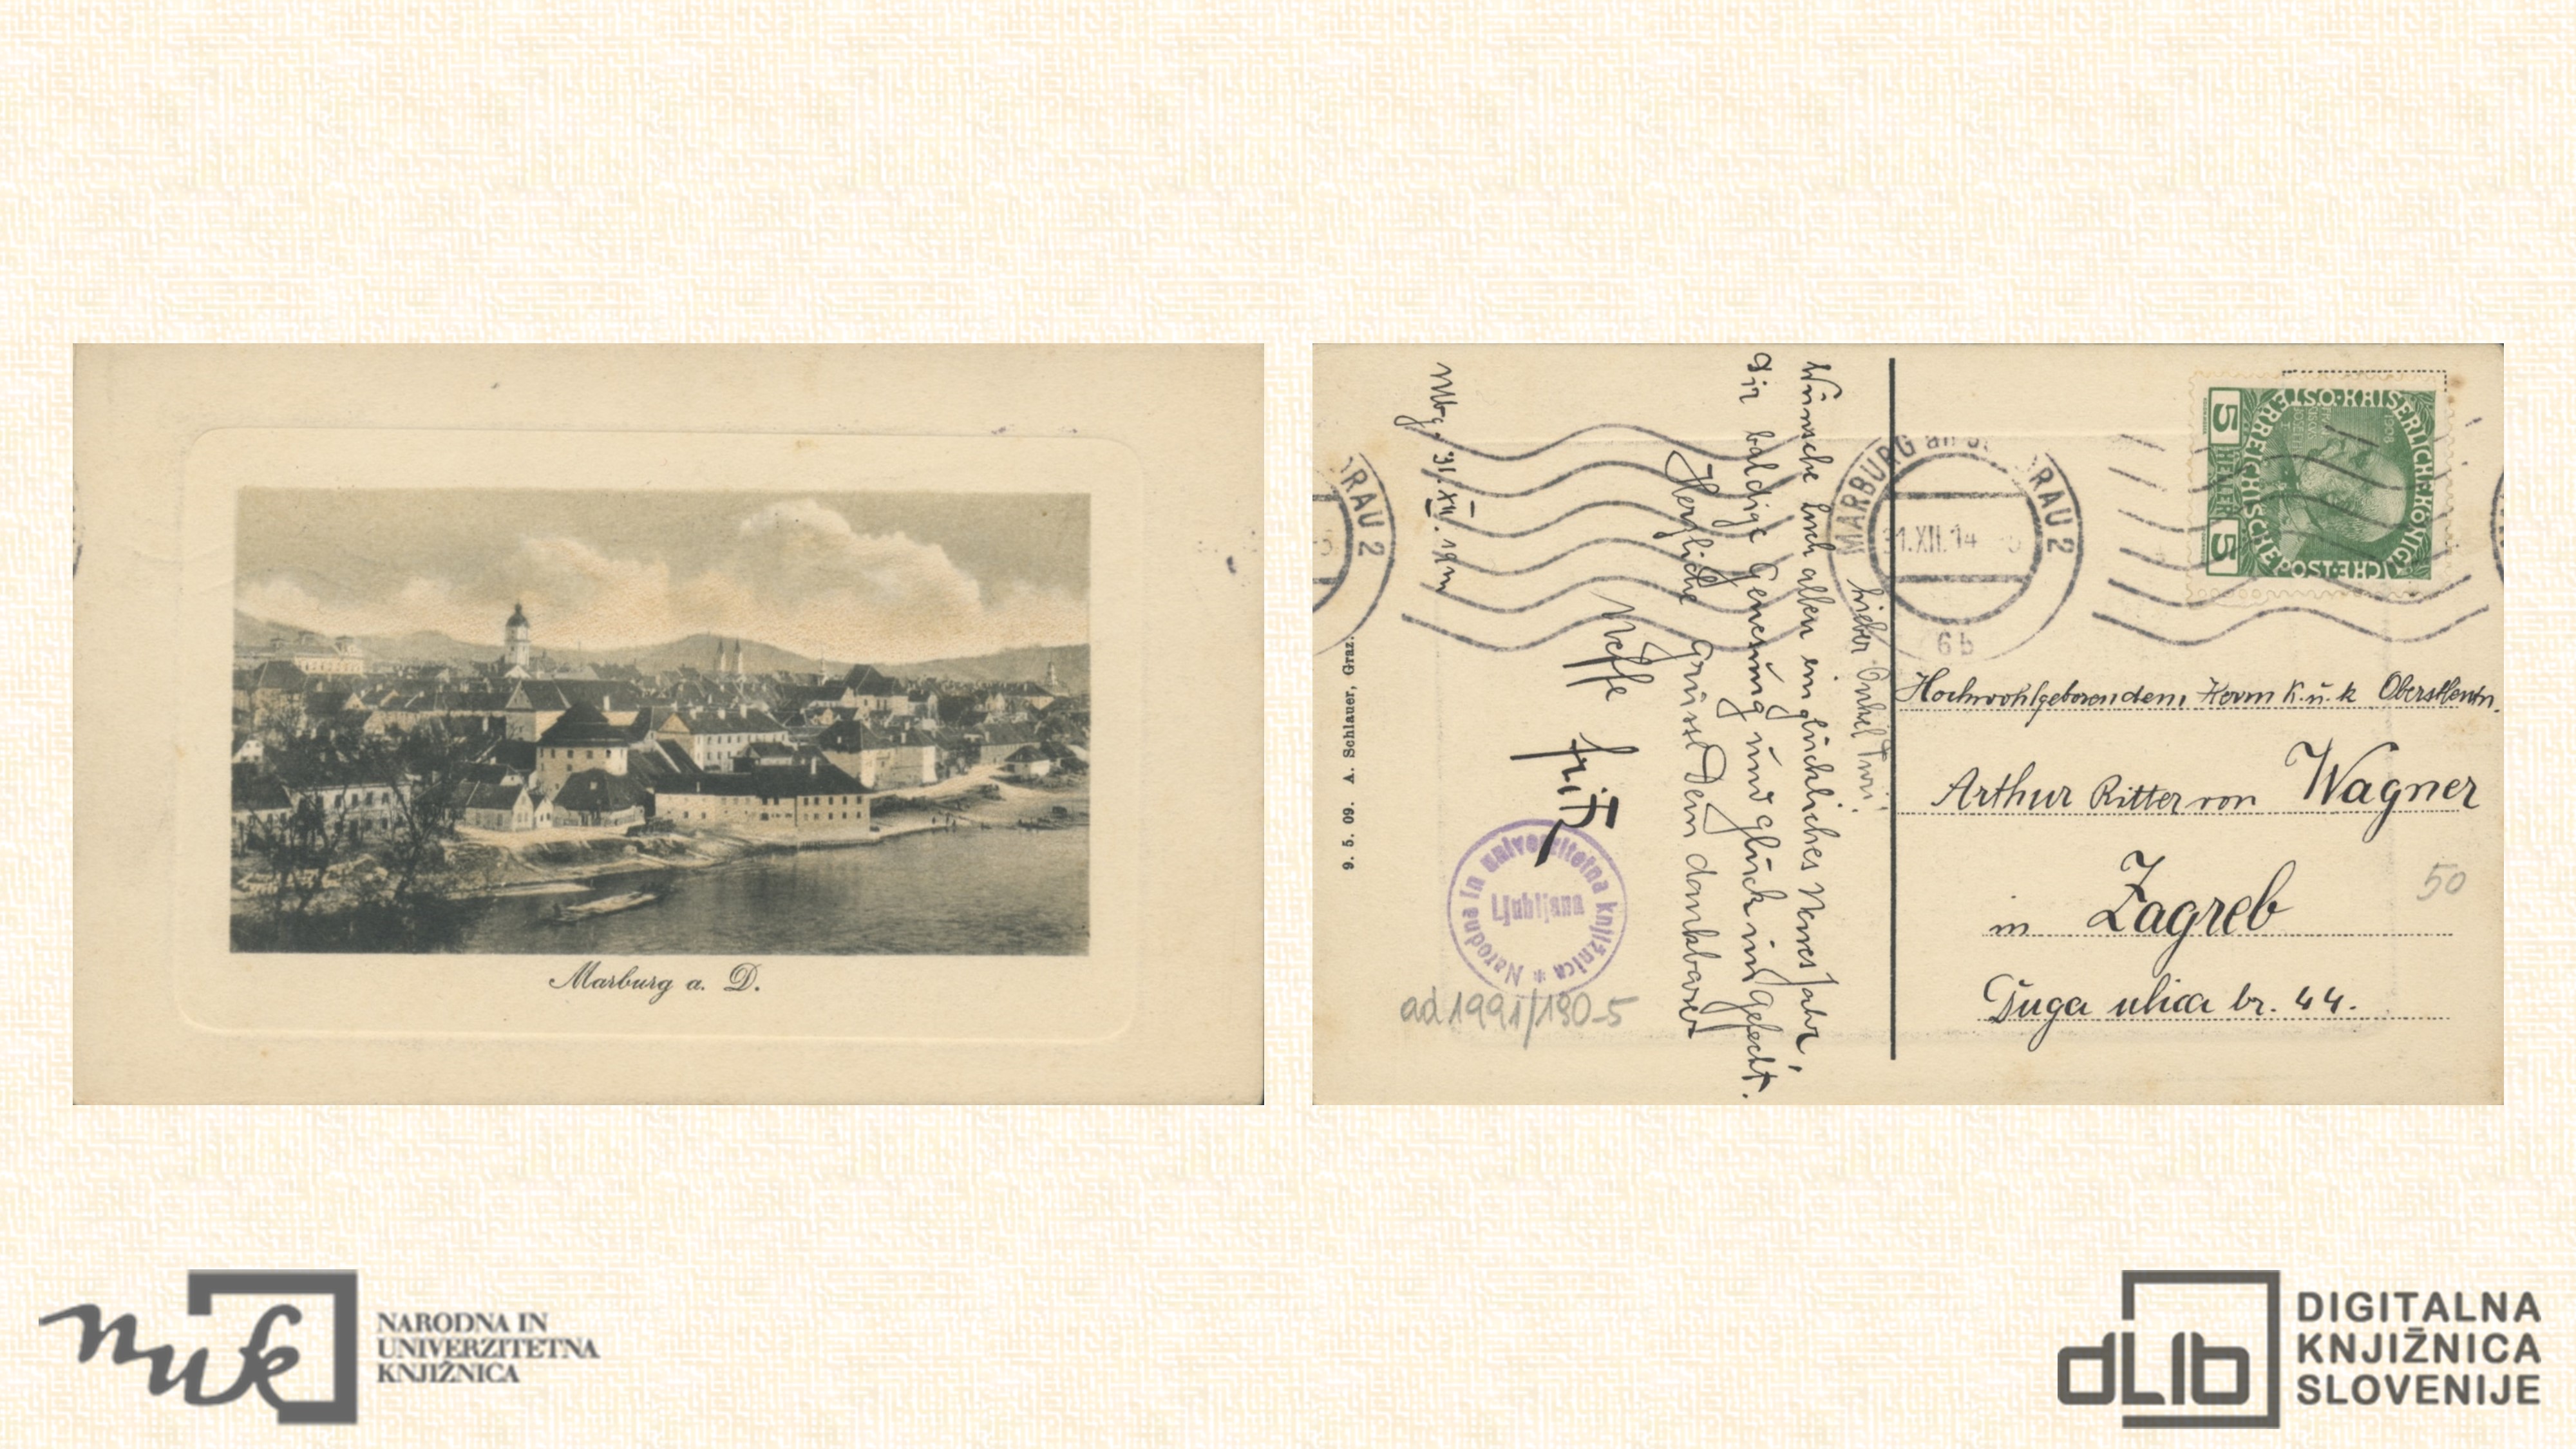 Marburg a. D.
9. 5. 09. A. Schlauer, Graz.
RAU 2
MARBURG an d. DRAU 2
31.XII.14
6b
ÖSTERREICHISCHE POST
KAISERLICHE KÖNIGLICHE
1908
5 HELLER 5
Lieber Onkel Turi!
Wünsche Euch allen ein glückliches Neues Jahr,
Dir baldige Genesung und Glück im Gefecht.
Herzliche Grüsse Dein dankbarer
Neffe Fritz
Mbg. 31.XII.1914
Narodna in univerzitetna knjižnica *
Ljubljana
ad 1991/190-5
Hochwohlgeborendem Herrn K.u.k Oberstleutn.
Arthur Ritter von Wagner
in Zagreb
Duga ulica br. 44.
50
nuk
NARODNA IN
UNIVERZITETNA
KNJIŽNICA
dLib
DIGITALNA
KNJIŽNICA
SLOVENIJE